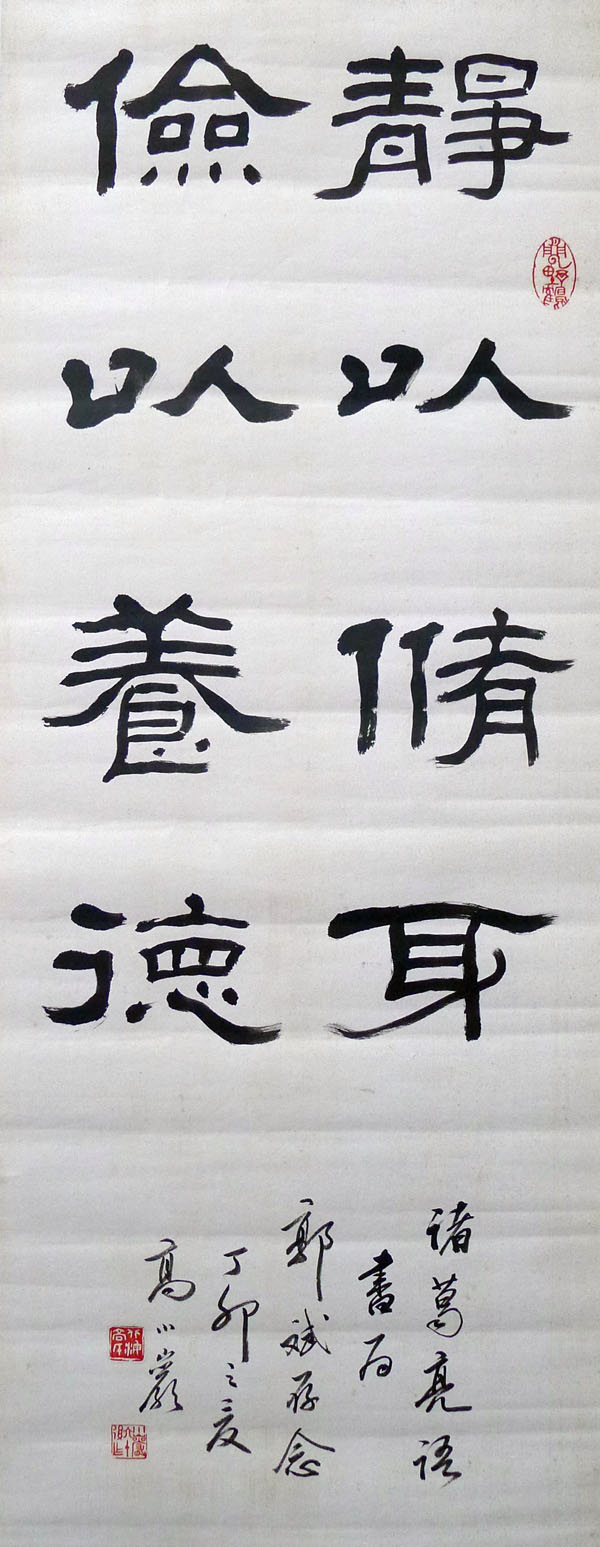 靜以脩身
儉以養德
諸葛亮語
書为
郭斌存念
丁卯之夏
高小巖